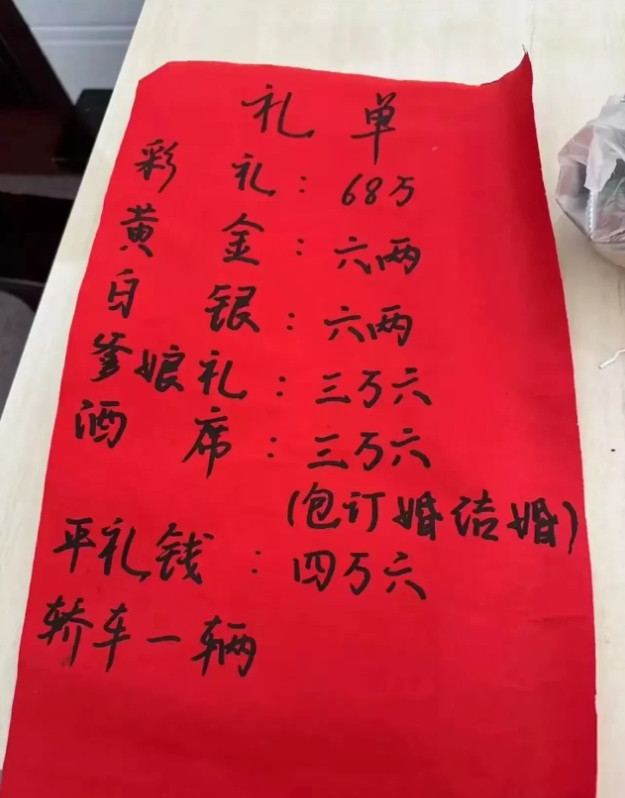 礼单
彩礼：68万
黄金：六两
白银：六两
爹娘礼：三万六
酒席：三万六
(包订婚结婚)
平礼钱：四万六
轿车一辆